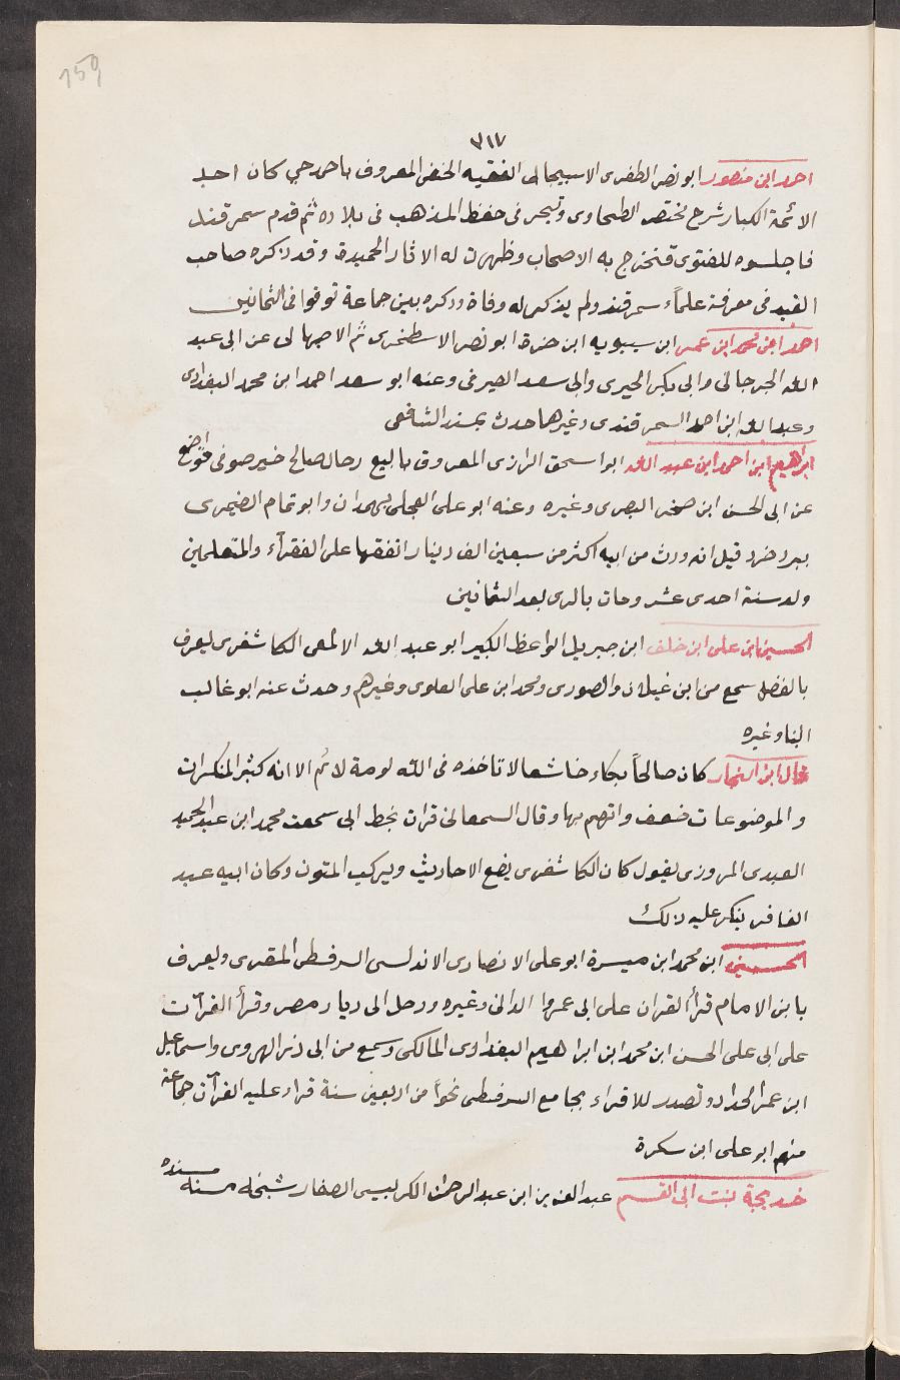 159
٣١٧
احمد ابن منصور ابو نصر الظفرى الاسبيجابى الفقيه الحنفى المعروف باحمدجي كان احد
الائمة الكبار شرح مختصر الطحاوى وتبحر فى حفظ المذهب فى بلاده ثم قدم سمرقند
فاجلسوه للفتوى فتخرج به الاصحاب وظهرت له الاثار الحميدة وقد ذكره صاحب
القند فى معرفة علماء سمرقند ولم يذكر له وفاة وذكره بين جماعة توفوا فى الثمانين
احمد ابن محمد ابن عمر ابن سيبويه ابن خرة ابو نصر الاسطخرى ثم الاصبهانى عن ابى عبد
الله الجرجانى وابى بكر الحيرى وابى سعد الصيرفى وعنه ابو سعد احمد ابن محمد البغدادى
وعبد الله ابن احمد السمرقندى وغيرهما حدث بمسند الشافعى
ابراهيم ابن احمد ابن عبد الله ابو اسحق الرازى المعروف بالبيع رحال صالح خير صوفى متواضع
عن ابى الحسن ابن صخر البصرى وغيره وعنه ابو على العجلى بهمدان وابو تمام الصيمرى
ببروجرد قيل انه ورث من ابيه اكثر من سبعين الف دينار انفقها على الفقراء والمتعلمين
ولد سنة احدى عشر ومات بالرى بعد الثمانين
الحسين ابن على ابن خلف ابن جبريل الواعظ الكبير ابو عبد الله الالمعى الكاشغرى يعرف
بالفضل سمع من ابن غيلان والصورى ومحمد ابن على العلوى وغيرهم وحدث عنه ابو غالب
البنا وغيره
قال ابن النجار كان صالحاً بكاء خاشعا لا تاخذه فى الله لومة لائم الا انه كثير المنكرات
والموضوعات ضعف واتهم بها وقال السمعانى قرات بخط ابى سمعت محمد ابن عبد الحميد
العبدى المروزى يقول كان الكاشغرى يضع الاحاديث ويركب المتون وكان ابيه عبد
الغافر ينكر عليه ذلك
الحسين ابن محمد ابن ميسرة ابو على الانصارى الاندلسى السرقسطى المقرى ويعرف
بابن الامام قرأ القران على ابى عمروا الدانى وغيره ورحل الى ديار مصر وقرأ القرآت
على ابى على الحسن ابن محمد ابن ابراهيم البغداوى المالكى وسمع من ابى ذر الهروى واسماعيل
ابن عمر الحداد وتصدر للاقراء بجامع السرقسطى نحواً من اربعين سنة قراء عليه القرآن جماعة
منهم ابو على ابن سكرة
خديجة بنت ابى القسم عبد العزيز ابن عبد الرحمن الكرابيسى الصفار شيخة مسنه مسنده